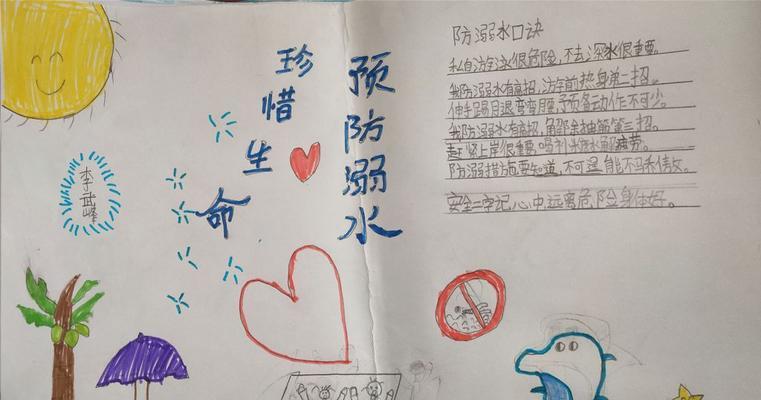 珍惜生命
预防溺水
李武峰
防溺水口诀
私自游泳很危险,不去深水很重要。
我防溺水有高招,游泳前热身第二招。
伸手踢月退弯弯腰,预备动作不可少。
我防溺水有高招,解除抽筋第三招。
赶紧上岸很重要,喝利水解疲劳。
防溺措施要知道,不可逞能不马
安全二字记心中,远离危险身体好。